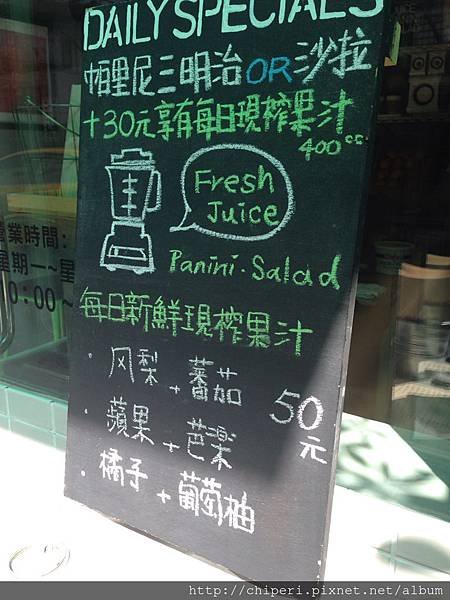 DAILY SPECIALS
帕里尼三明治OR沙拉
+30元享有每日現榨果汁
400cc
Fresh
Juice
Panini·Salad
每日新鮮現榨果汁
·风梨+蕃茄
·蘋果+芭樂
·橘子+葡萄柚
50元
業時間:
星期一~星
0:00~
http://chiperi.pixnet.net/album